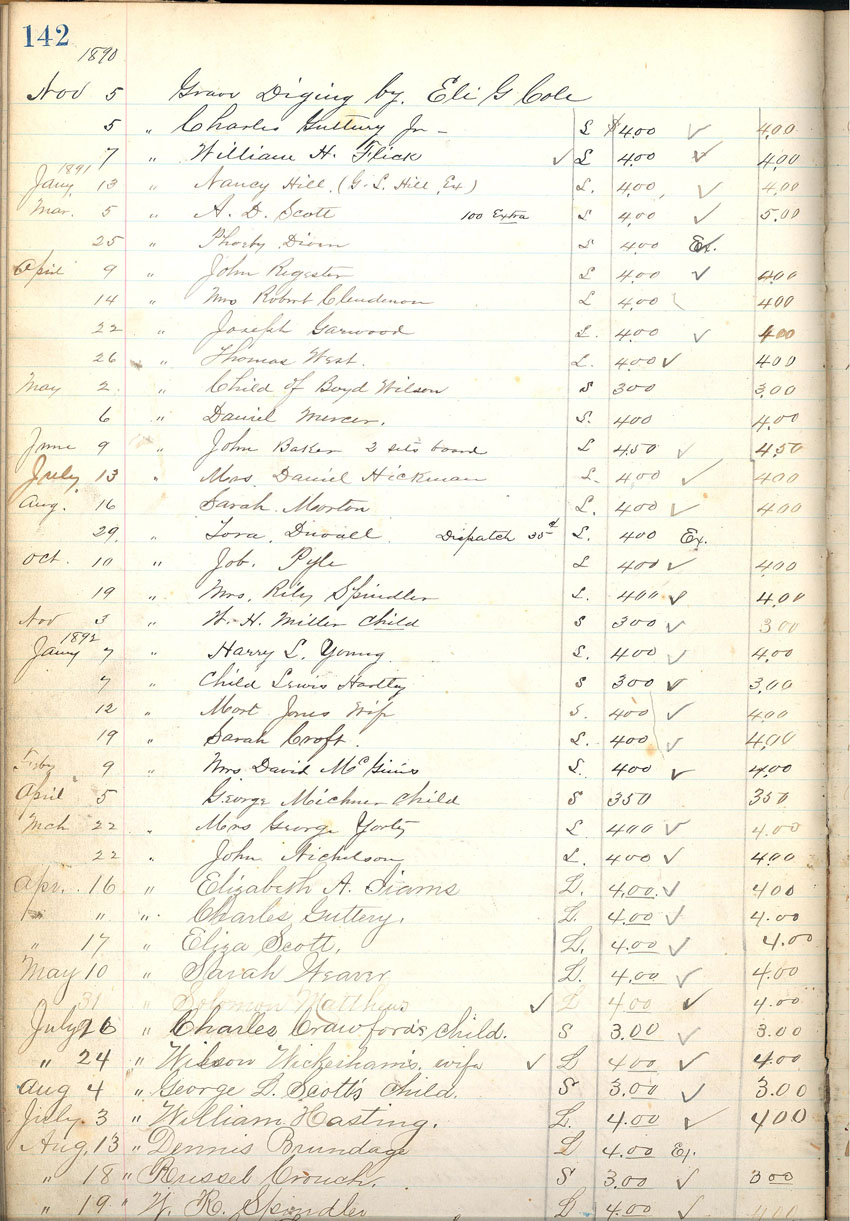 142
1890
Nov 5 Grave Diging by. Eli G Cole
5 " Charles Guttery Jr - L $400 ✓ 400
7 " William H. Flick ✓ L 400 ✓ 400
1891
Jany 13 " Nancy Hill. (G. L. Hill Ex) L. 400 ✓ 400
Mar. 5 " A. D. Scott 100 Extra S 400 ✓ 5.00
25 " Phoeby S 400 Ex.
April 9 " John Regester L 400 ✓ 400
14 " Mrs Robert Clendenon L 400 400
22 " Joseph Garwood L. 400 ✓ 400
26 " Thomas West. L. 400 ✓ 400
May 2 " Child of Boyd Wilson S 300 3.00
6 " Daniel Mercer. S. 400 4.00
June 9 " John Baker 2 sets board L 450 ✓ 450
July 13 " Mrs. Daniel Hickman L. 400 ✓ 400
Aug. 16 " Sarah Morton L. 400 ✓ 400
29. " Duvall Dispatch 35 L. 400 Ex.
Oct. 10 " Job. Pyle L 400 ✓ 400
19 " Mrs. Rily Spindler L. 400 ✓ 4.00
Nov 3 " W. H. Miller Child S 300 ✓ 300
1892
Jany 7 " Harry L. Young L. 400 ✓ 4.00
7 " Child Lewis Hartley S 300 ✓ 3.00
12 " Mort Jones Wife S. 400 ✓ 400
19 " Sarah Croft. L. 400 ✓ 400
9 " Mrs David McGinis L. 400 ✓ 4.00
April 5 George Michner Child S 350 350
Mch 22 " Mrs George Yorty L 400 ✓ 4.00
22 " John Nichelson L. 400 ✓ 400
Apr. 16 " Elizabeth A. Siams L. 4.00 ✓ 400
" " " Charles Guttery. L. 4.00 ✓ 4.00
" 17 " Eliza Scott. L. 4.00 ✓ 4.00
May 10 " Sarah Weaver L. 4.00 ✓ 4.00
31 " Solomon Matthews ✓ L 4.00 ✓ 4.00
July 16 " Charles Crawford's Child. S 3.00 ✓ 3.00
" 24 " Wilson Wickerham's wife ✓ L 4.00 ✓ 4.00
Aug 4 " George L. Scott's Child. S 3.00 ✓ 3.00
July 3 " William Hasting. L. 4.00 ✓ 400
Aug. 13 " Dennis Brundage L 4.00 Ex.
" 18 " Russel Crouch. S 3.00 ✓ 3 00
" 19 " W. R. Spindler L 4.00 ✓ 400